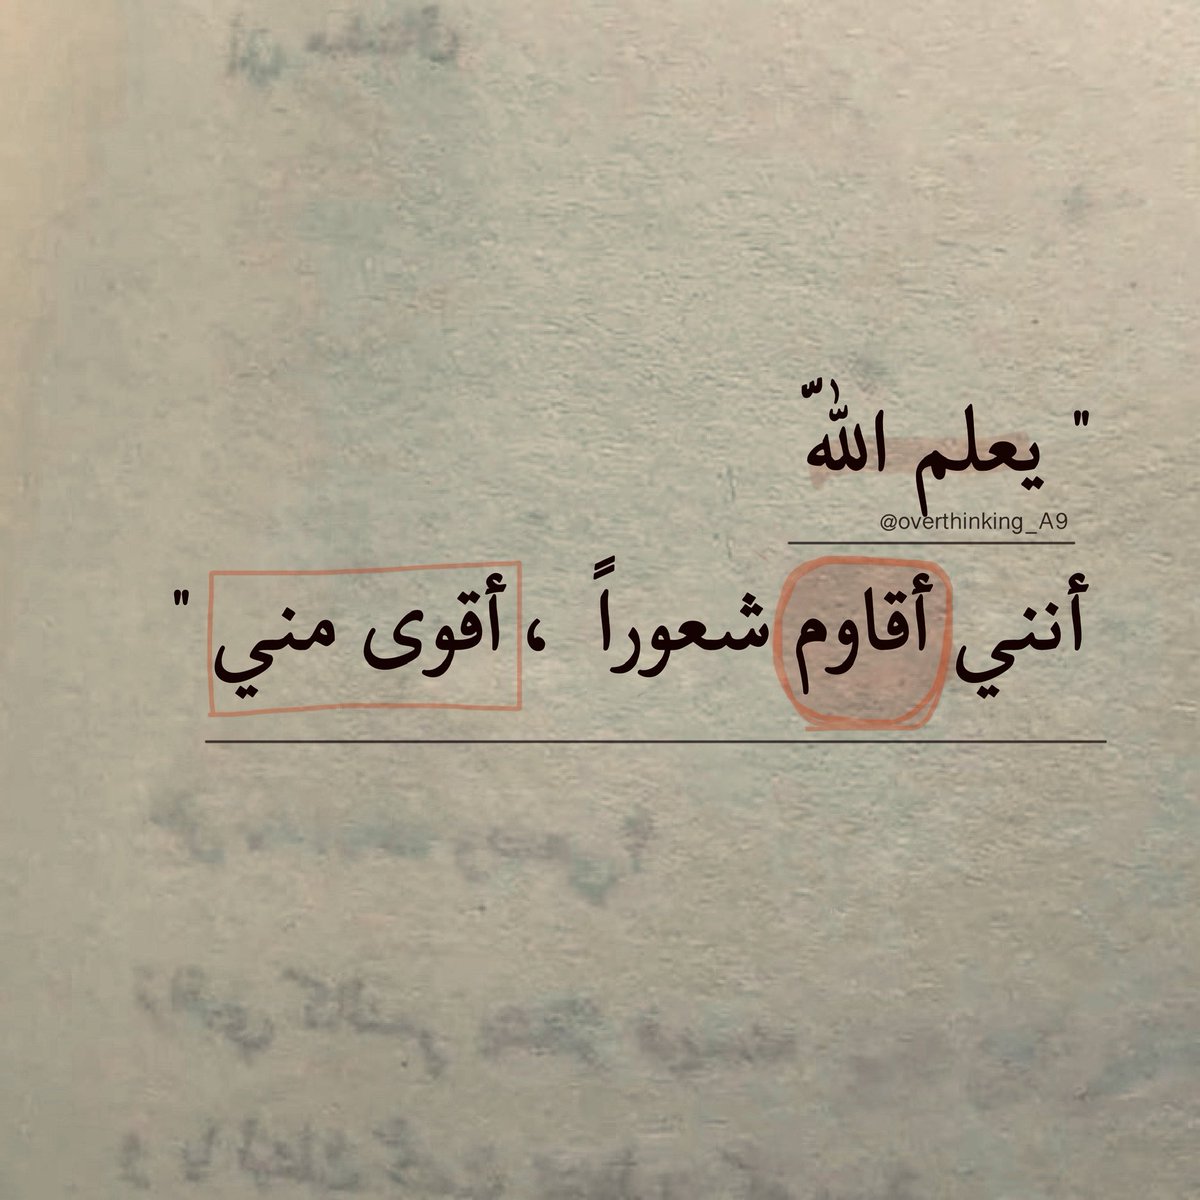 " يعلم اللّٰه
@overthinking_A9
أنني أقاوم شعوراً ، أقوى مني "